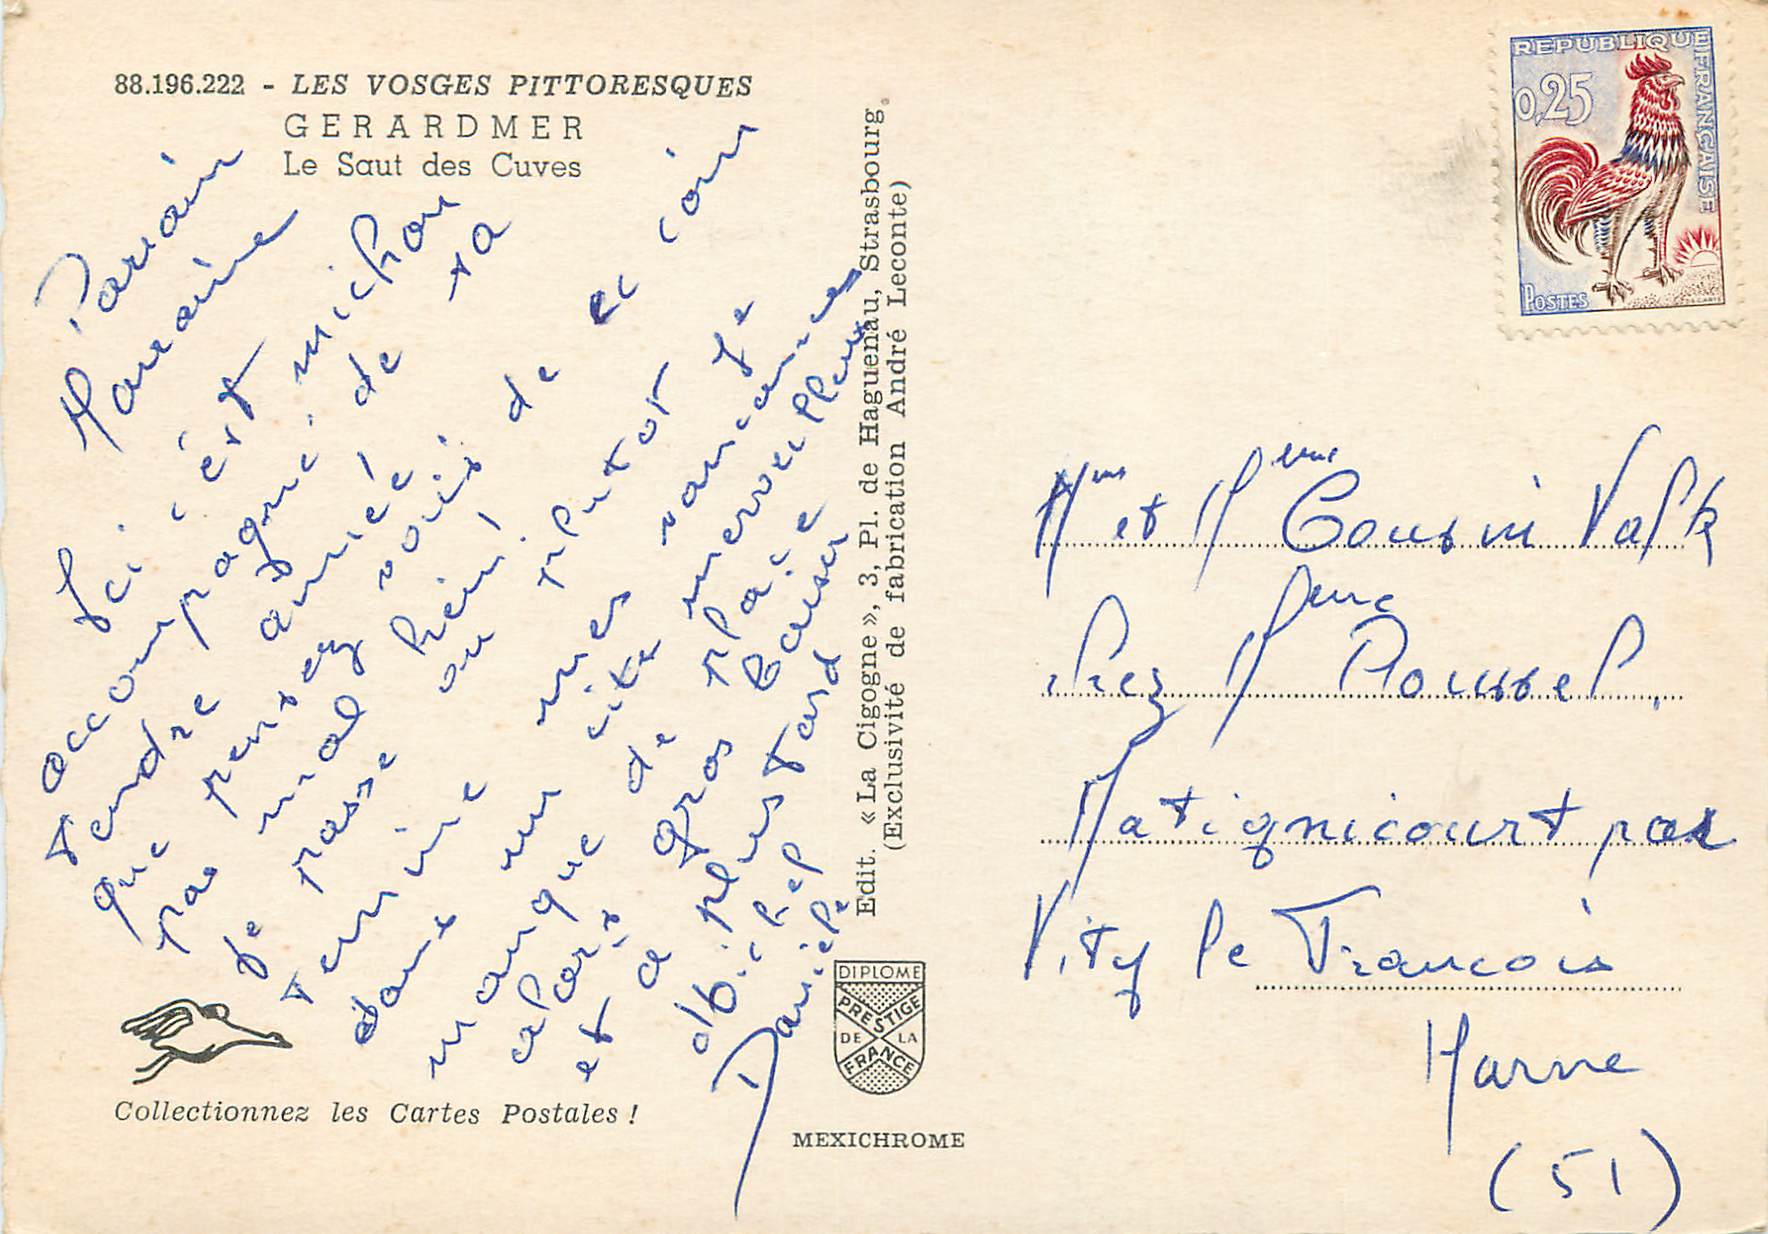 88.196.222 - LES VOSGES PITTORESQUES
GERARDMER
Le Saut des Cuves
Parrain
Marraine
Ici c'est michou
accompagné de ta
tendre amie!
que pensez vous de ce coin
pas mal hein!
Je passe ou plutot je
termine mes vacances
dans un cite merveilleux
manque de place
alors gros baiser
et a plus tard
Michel
Daniele
Collectionnez les Cartes Postales !
Edit. « La Cigogne », 3, Pl. de Haguenau, Strasbourg.
(Exclusivité de fabrication André Leconte)
DIPLOME
PRESTIGE
DE LA
FRANCE
MEXICHROME
REPUBLIQUE FRANÇAISE
0,25
POSTES
Mr et Mme Cousin Valk
chez Mme Roussel.
Matignicourt par
Vity le Francois
Marne
(51)